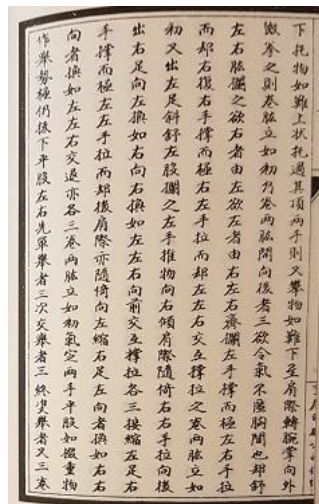 下托物如難上狀托過其頂兩手則又攀物如難下至肩際轉腕掌向外
微拳之則卷肱立如初乃卷兩肱開向後者三欲令氣不匿胸間也却舒
左右肱攔之欲右者由左欲左者由右左右齋攔左手撑而極左右手拉
而却右復右手撑而極右左手拉而却左左右交互撑拉之卷兩肱立如
初又出左足斜舒左股攔之左手推物向右傾肩際隨倚右右手拉向後
出右足向左㨾如右向右㨾如左左右向前交互撑拉各三接縮左足右
手撑而極左左手拉而却後肩際亦隨倚向左縮右足左向者㨾如右右
向者㨾如左左右交退亦各三卷兩肱立如初氣定兩手平股如掇重物
作舉勢極仍接下平股左右先單舉者三次交舉者三終雙舉者又三卷